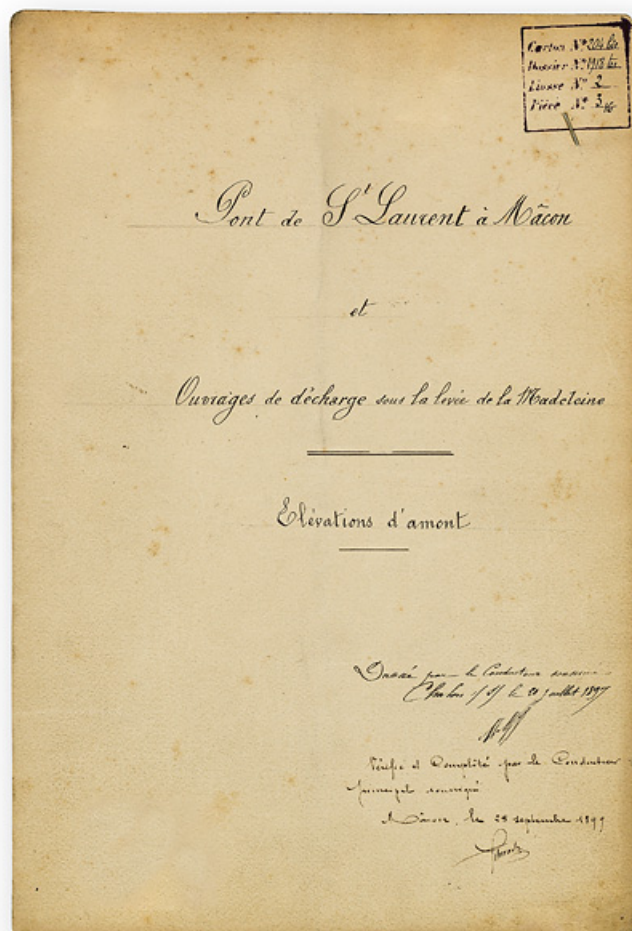 Carton Nº 204 bis
Dossier Nº 1918 bis
Liasse Nº 2
Pièce Nº 3
Pont de St Laurent à Mâcon
et
Ouvrages de décharge sous la levée de la Madeleine
Elévations d'amont
Dressé par le Conducteur soussigné
Chalon s/S le 20 juillet 1897
Vérifié et Complété par le Conducteur
principal soussigné
Mâcon, le 28 septembre 1899